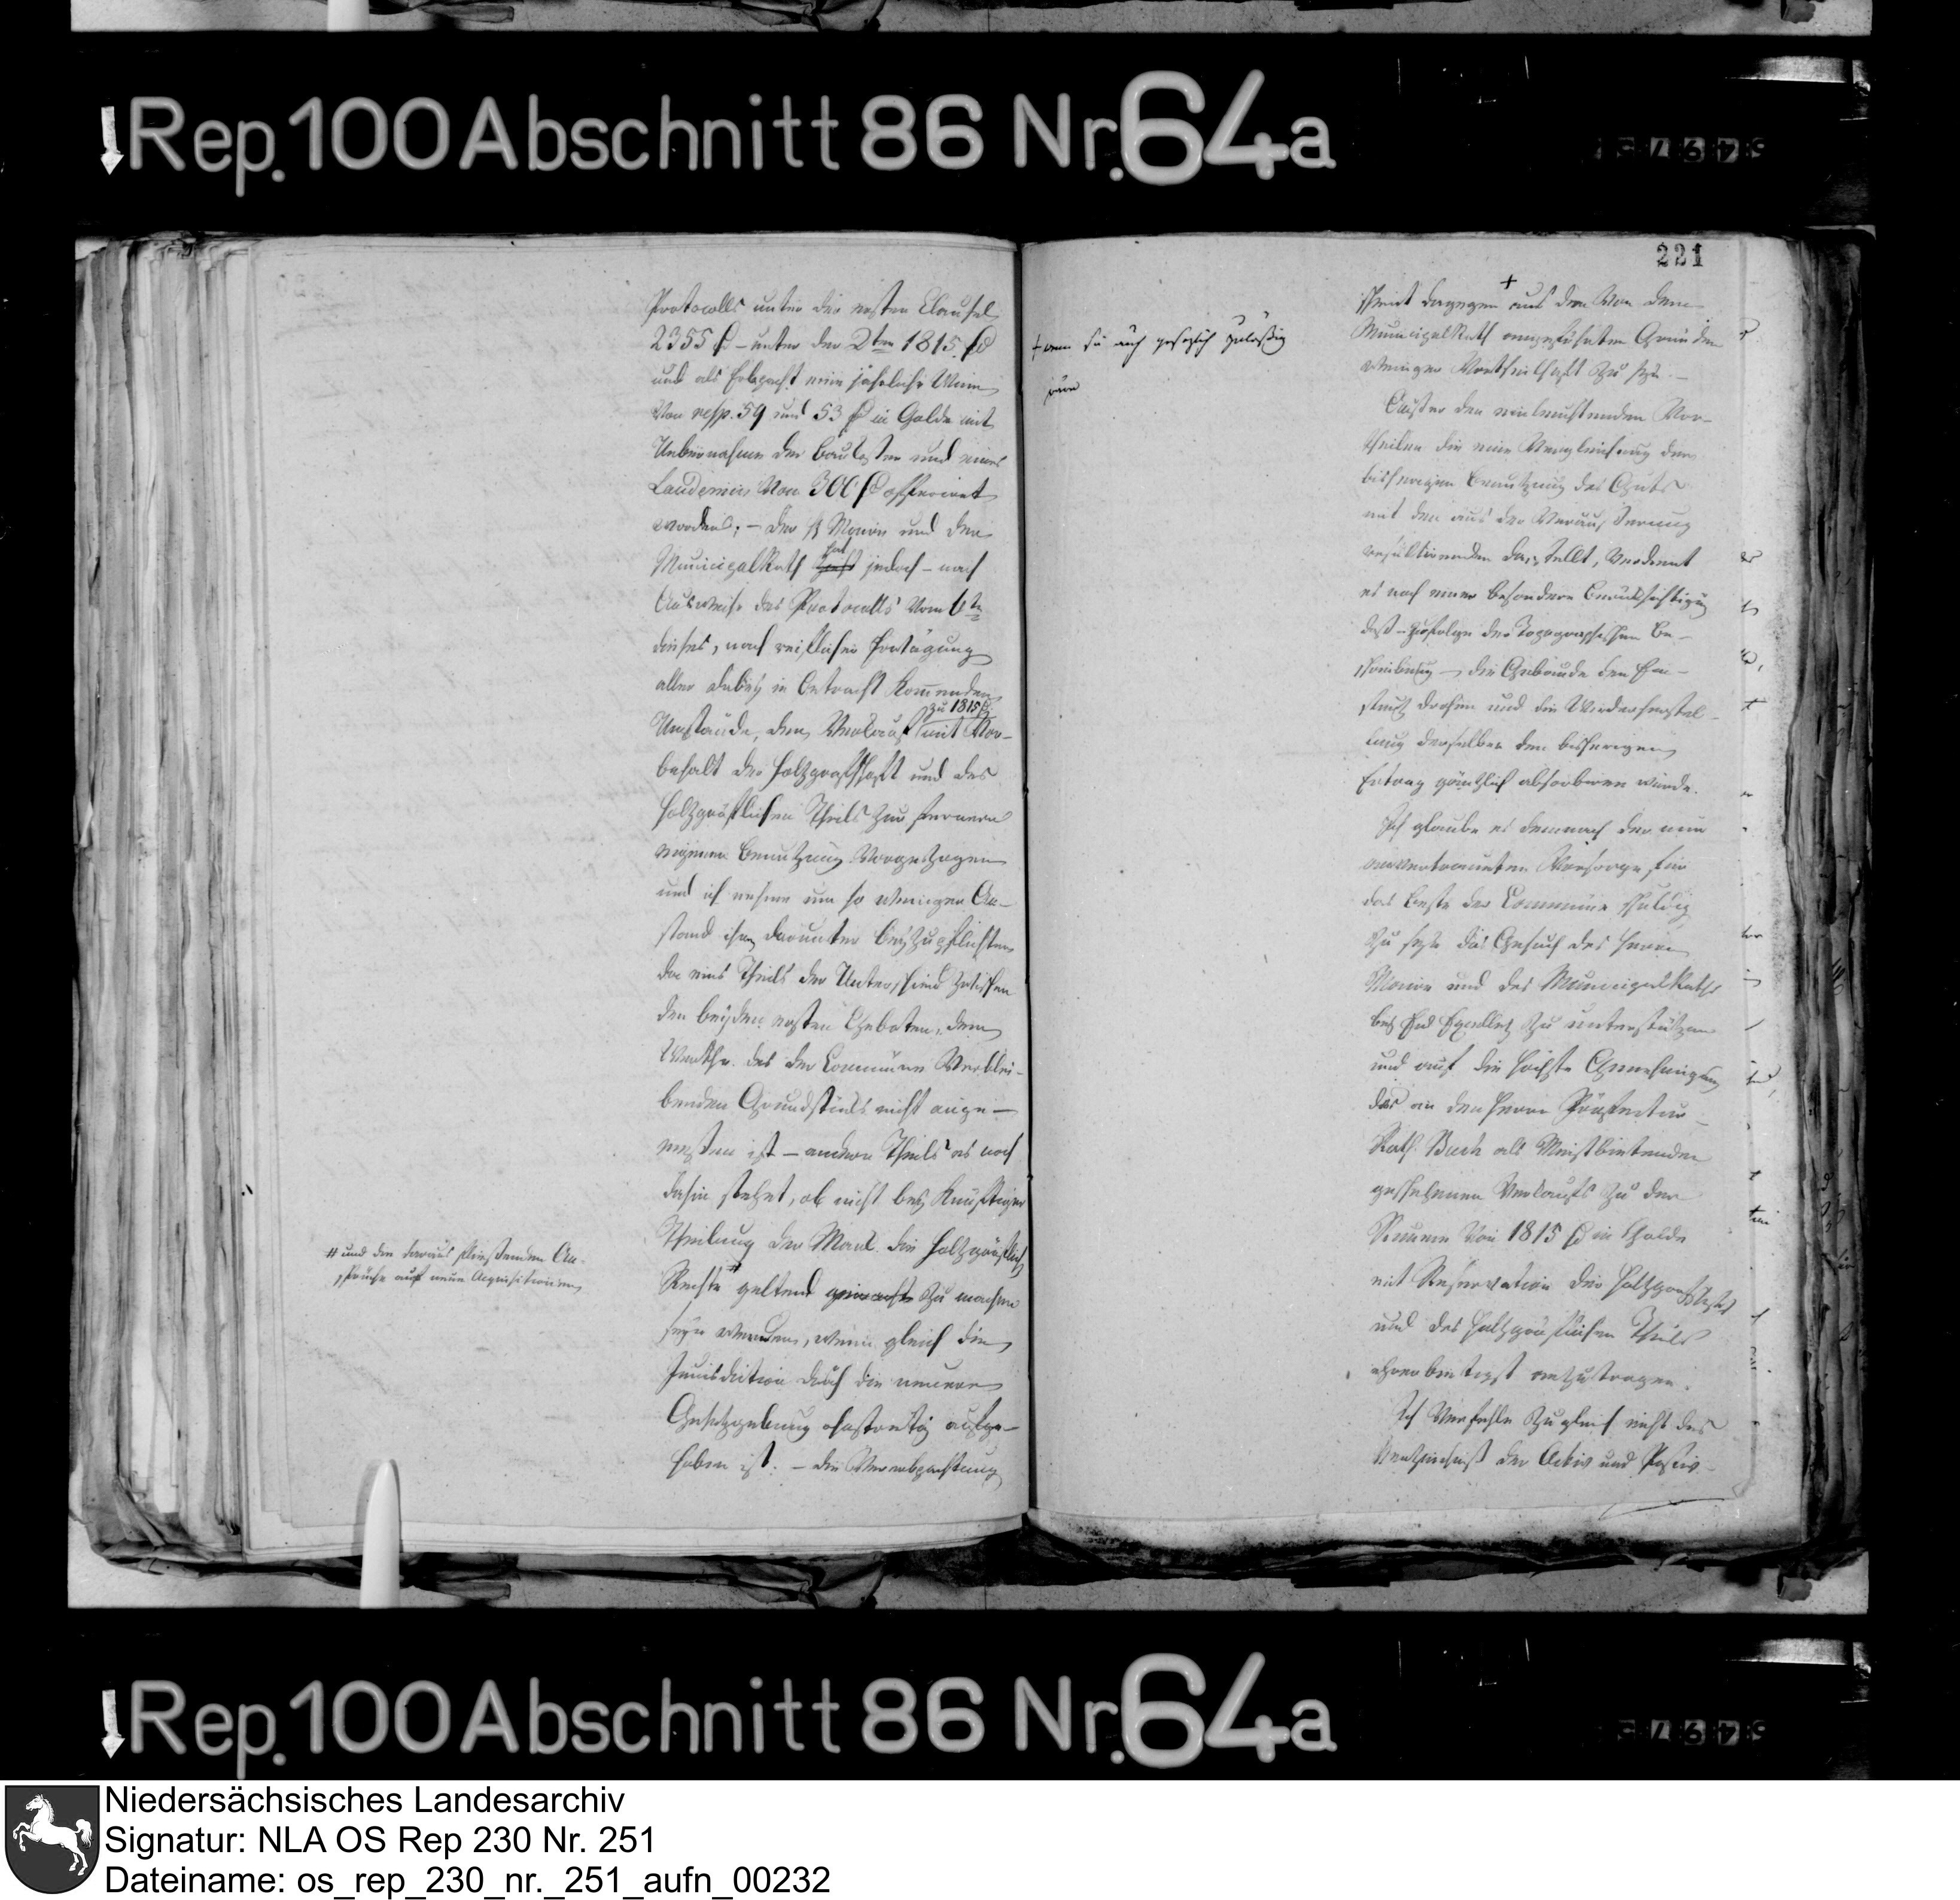 Rep. 100 Abschnitt 86 Nr. 64a
Protocolls unter der ersten Clausel
2355 – unter der 2ten 1815
und als Erbpacht eine jährliche
Von resp. 59 und 53 in Golde mit
Uebernahme der Baulasten und eines
Laudemii Von 300 offeriret
worden; – Der H Maire und der
MunicipalRath hat jedoch – nach
Ausweise des Protocolls vom 6ten
dieses, nach reiflicher
aller dabey in Betracht kommenden
Umstände, den Verkauf zu 1815 mit Vor-
behalt der Holzgrafschaft und des
Holzgräflichen Theils zur fernern
eigenen Benutzung Vorgezogen
und ich nehme um so weniger An-
stand ihm darunter beyzupflichten
da eins Theils der Unterschied zwischen
den beyden ersten Geboten, dem
Werthe des der Commüne Verblei-
benden Grundstücks nicht ange-
messen ist – andern Theils es noch
dahin stehet, ob nicht bey künftiger
Theilung der Mark die Holzgräflich
Rechte geltend zu machen
seyn werden, wenn gleich die
Jurisdiction durch die neuere
Gesetzgebung ohnstreitig aufge-
hoben ist. – die Vererbpachtung
# und die daraus fließenden An-
sprüche auf neue Acquisitionen
221
scheint dagegen + aus den Von dem
MunicipalRath angeführten Gründen
weniger Vortheilhaft zu seyn –
+ wenn sie auch gesezlich zuläßig
wäre
Außer den einleuchtenden Vor-
theilen die eine Vergleichung der
bisherigen Benutzung des Guts
mit den aus der Veräusserung
resultirenden darstellt, Verdient
es noch einer besondern Berücksichtigung
daß – zufolge der Topographischen Be-
schreibung – die Gebäude den Ein-
sturz drohen und die Wiederherstel-
lung derselben den bisherigen
Ertrag gänzlich absorbiren würde.
Ich glaube es demnach der mir
anvertraueten Vorsorge für
das Beste der Commüne schuldig
zu seyn das Gesuch des Herrn
Maire und des MunicipalRaths
bey Ew Excellenz zu unterstützen
und auf die höchste Genehmigung
des an den Herrn Präfectur-
Rath Buch als Meistbietenden
geschehenen Verkaufs zu der
Summe Von 1815 in Golde
mit Reservation der Holzgrafschaft
und des Holzgräflichen Theils
ehrerbietigst anzutragen.
Ich Verfehle zugleich nicht das
Verzeichniß der Activ und Passiv-
Rep. 100 Abschnitt 86 Nr. 64a
Niedersächsisches Landesarchiv
Signatur: NLA OS Rep 230 Nr. 251
Dateiname: os_rep_230_nr._251_aufn_00232